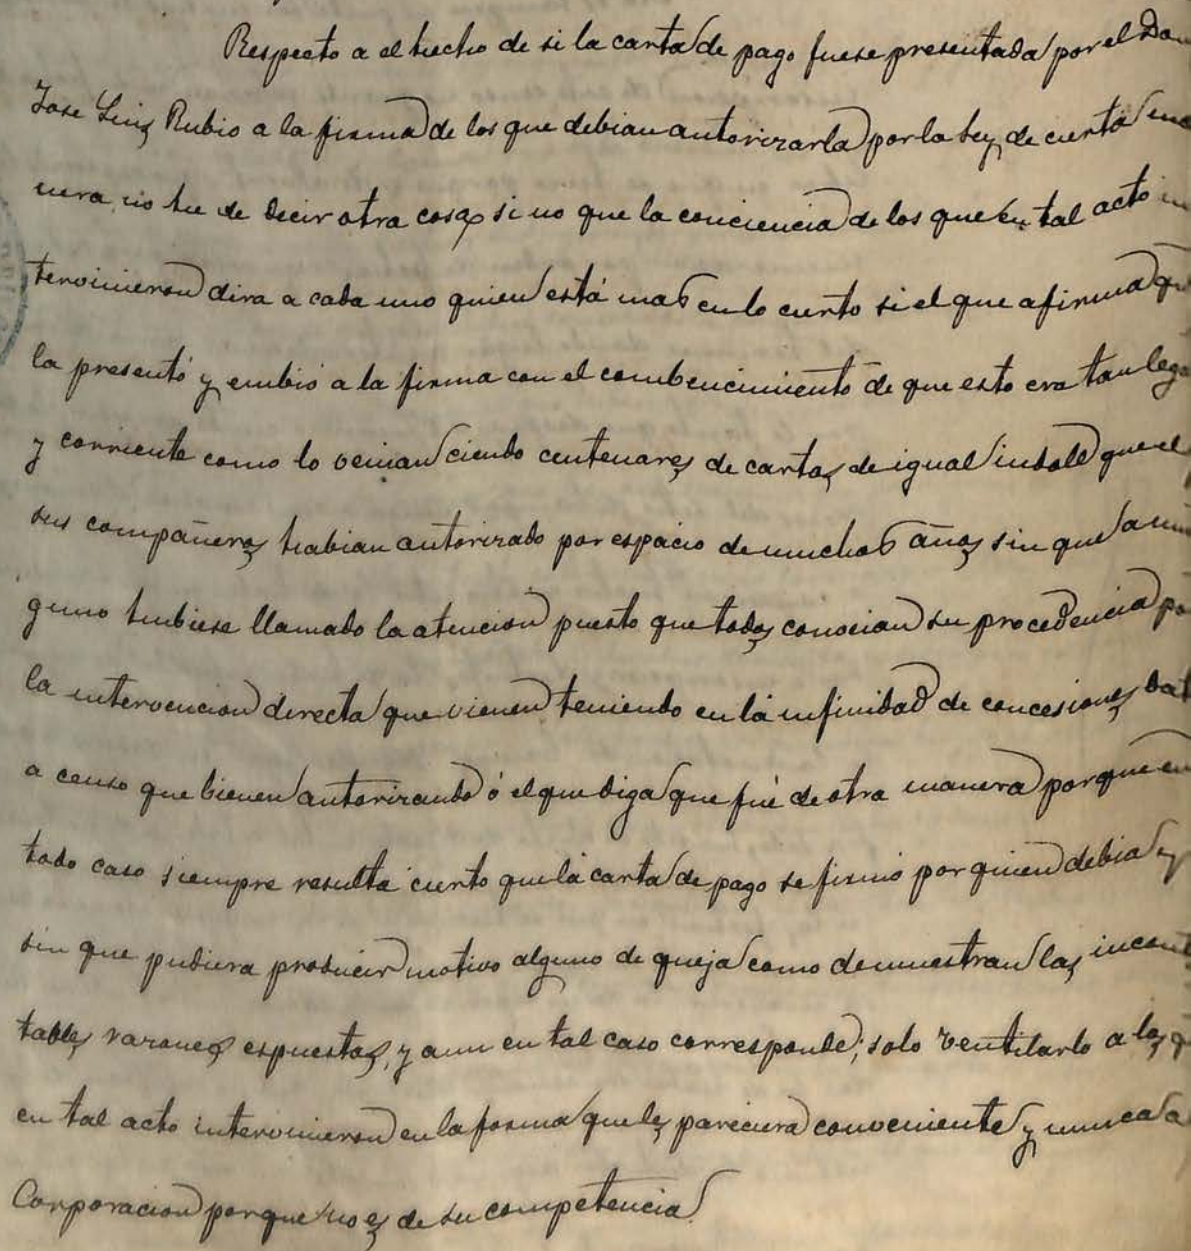 Respecto a el hecho de si la carta de pago fuese presentada por el Don
Jose Luis Rubio a la firma de los que debian autorizarla por la Ley, de cierta ma
nera no he de decir otra cosa si no que la conciencia de los que en tal acto in
tervinieron dira a cada uno quien está mas en lo cierto si el que afirma qu
la presentó y embió a la firma con el combencimiento de que esto era tan lega
y corriente como lo venian ciendo centenares de cartas de igual indole que el
sus compañeros habian autorizado por espacio de muchos años sin que a nin
guno hubiese llamado la atencion puesto que todos conocian su procedencia po
la intervencion directa que vienen teniendo en la infinidad de concesiones dat
a censo que bienen autorizando ó el que diga que fué de otra manera porque en
todo caso siempre resulta cierto que la carta de pago se firmó por quien debia y
sin que pudiera producir motivo alguno de queja como demuestran las incon
tables razones espuestas, y aun en tal caso corresponde; solo ventilarlo a los q
en tal acto intervinieron en la forma que les pareciera conveniente y nunca a
Corporacion porque no es de su competencia